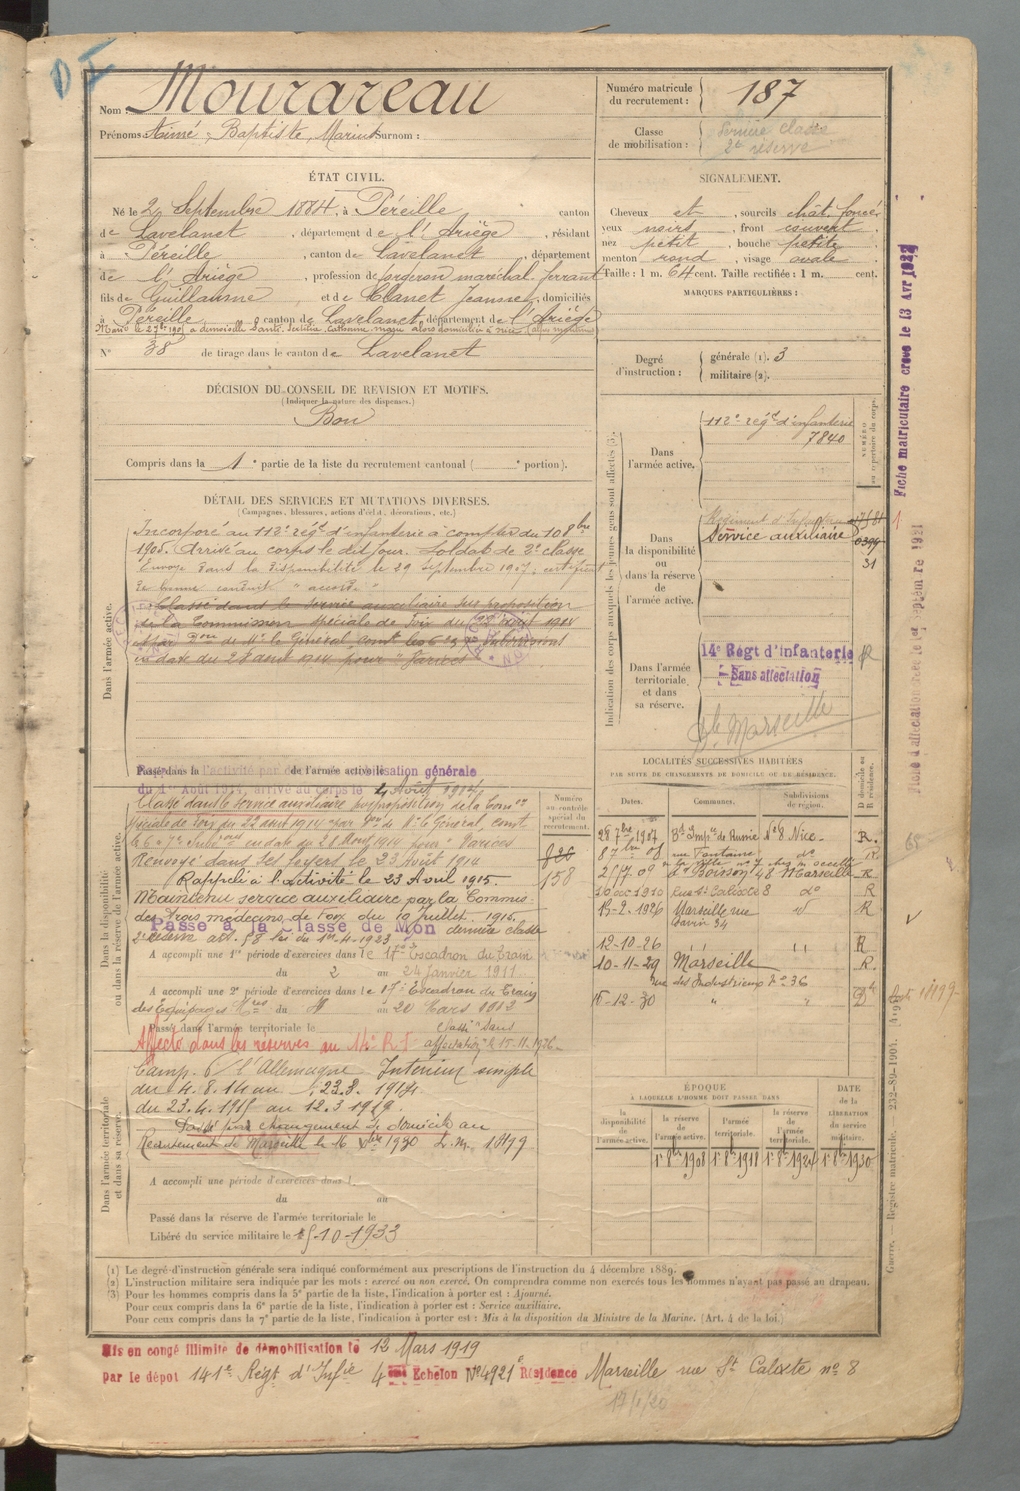 Nom : Mourareau
Prénoms Aimé, Baptiste, Marius Surnom :
Numéro matricule du recrutement : 187
Classe de mobilisation : Dernière classe
2e réserve
ÉTAT CIVIL.
Né le 2 Septembre 1884, à Péreille canton
de Lavelanet, département de l'Ariège, résidant
à Péreille, canton de Lavelanet, département
de l'Ariège, profession de forgeron maréchal ferrant
fils de Guillaume et de Clanet Jeanne, domiciliés
à Péreille, canton de Lavelanet, département de l'Ariège
N° 38 de tirage dans le canton de Lavelanet
SIGNALEMENT.
Cheveux et, sourcils chât. foncé
yeux noirs, front couvert
nez petit, bouche petite
menton rond, visage ovale
Taille : 1 m. 64 cent. Taille rectifiée : 1 m. cent.
MARQUES PARTICULIÈRES :
DÉCISION DU CONSEIL DE REVISION ET MOTIFS.
(Indiquer la nature des dispenses.)
Bon
Compris dans la 1e partie de la liste du recrutement cantonal ( e portion).
Degré d'instruction :
générale (1). 3
militaire (2).
DÉTAIL DES SERVICES ET MUTATIONS DIVERSES.
(Campagnes, blessures, actions d'éclat, décorations, etc.)
Dans l'armée active.
Incorporé au 112e régt d'infanterie à compter du 10 8bre
1905. Arrivé au corps le dit jour. Soldat de 2e classe
Envoyé dans la disponibilité le 29 septembre 1907; certificat
de bonne conduite "accordé"
Classé dans le service auxiliaire sur proposition
de la Commission spéciale de Foix du 22 août 1914
de Mr le Général, comt les 6e
en date du 28 août 1914 pour "Varices"
Indication des corps auxquels les jeunes gens sont affectés (3).
NUMÉRO au répertoire du corps.
Dans l'armée active.
112e régt d'infanterie
7840
Dans la disponibilité ou dans la réserve de l'armée active.
Régiment d'Infanterie
Service auxiliaire
31
Dans l'armée territoriale et dans sa réserve.
14e Régt d'infanterie
Sans affectation
Marseille
Fiche matriculaire créée le 13 Avr
Fiche d'affectation créée le 1er septembre 1921
Dans la disponibilité ou dans la réserve de l'armée active.
Passé dans la de l'armée active le
l'activité par mobilisation générale
du 1er Août 1914, arrivé au corps le 4 Août 1914
Classé dans le service auxiliaire sur proposition de la Comon
Spéciale de Foix du 22 août 1914 par Don de Mr le Général, comt
en date du 28 Août 1914 pour "Varices"
Renvoyé dans ses foyers le 23 Août 1914
Rappelé à l'activité le 23 Avril 1915.
Maintenu service auxiliaire par la Commis-
des trois médecins de Foix du 10 Juillet 1915.
Passé à la Classe de Mon dernière classe
2e réserve art. 58 loi du 1er-4-1923
A accompli une 1re période d'exercices dans le 17e Escadron du Train
du 2 au 24 janvier 1911.
A accompli une 2e période d'exercices dans le 17e Escadron du Train
des Equipages Mres du au 20 Mars 1912
Passé dans l'armée territoriale le
Classé "sans
affectation" le 15-11-1926
Affecté dans les réserves au 14e R I
Numéro au contrôle spécial du recrutement.
826
158
LOCALITÉS SUCCESSIVES HABITÉES
PAR SUITE DE CHANGEMENTS DE DOMICILE OU DE RÉSIDENCE.
Dates. Communes. Subdivisions de région. D domicile ou R résidence.
28 7bre 1907 Bd Impce de Russie No 8 Nice. R.
8 7bre 08 rue Fontaine do R
2/17 09 Bd Boisson 48 Marseille R
10 dec 1910 Rue St Calixte 8 do R
15-2-1926 Marseille rue R
34
12-10-26 " R
10-11-29 Marseille R.
rue des Industrieux No 36
15-12-30 " "
Dans l'armée territoriale et dans sa réserve.
Camp. c/ l'Allemagne Intérieur simple
du 4.8.14 au 23.8.1914
du 23.4.1915 au 12.3.1919.
Passé par changement de domicile au
Recrutement de Marseille le 16 Xbre 1930
A accompli une période d'exercices dans l
du au
Passé dans la réserve de l'armée territoriale le
Libéré du service militaire le 15-10-1933
ÉPOQUE
À LAQUELLE L'HOMME DOIT PASSER DANS
la disponibilité de l'armée active.
la réserve de l'armée active.
l'armée territoriale.
la réserve de l'armée territoriale.
DATE de la LIBÉRATION du service militaire.
1er 8bre 1908 1er 8bre 1918 1er 8bre 1924 1er 8bre 1930
(1) Le degré d'instruction générale sera indiqué conformément aux prescriptions de l'instruction du 4 décembre 1889.
(2) L'instruction militaire sera indiquée par les mots : exercé ou non exercé. On comprendra comme non exercés tous les hommes n'ayant pas passé au drapeau.
(3) Pour les hommes compris dans la 5e partie de la liste, l'indication à porter est : Ajourné.
Pour ceux compris dans la 6e partie de la liste, l'indication à porter est : Service auxiliaire.
Pour ceux compris dans la 7e partie de la liste, l'indication à porter est : Mis à la disposition du Ministre de la Marine. (Art. 4 de la loi.)
Guerre. — Registre matricule. — 232-89-1904.
Mis en congé illimité de démobilisation le 12 Mars 1919
par le dépôt 141e Régt d'Infie 4e Echelon No 4921 Résidence Marseille rue St Calixte no 8